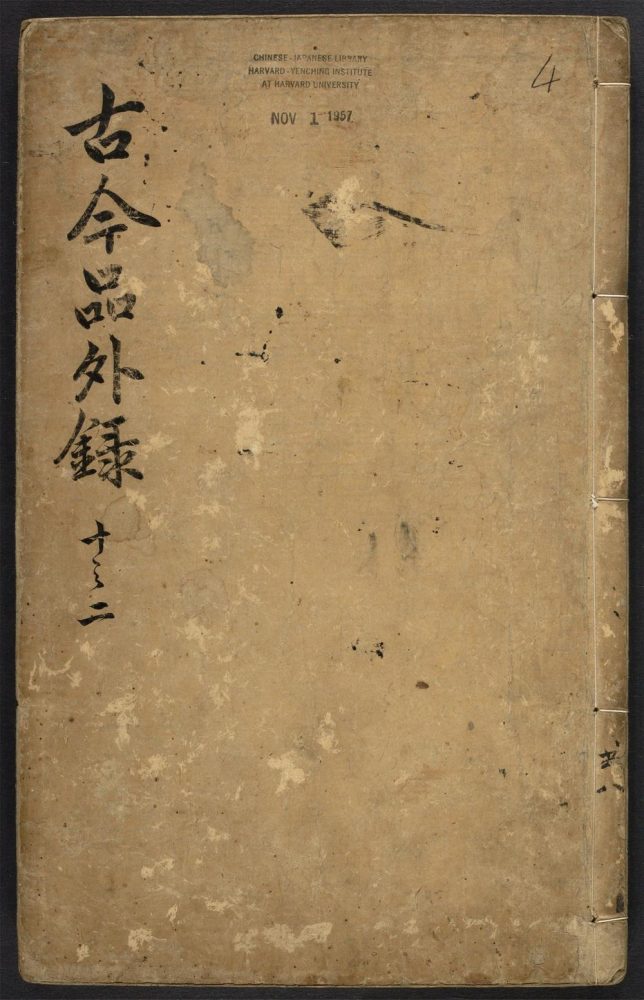 CHINESE-JAPANESE LIBRARY
HARVARD-YENCHING INSTITUTE
AT HARVARD UNIVERSITY
NOV 1 1957
4
古今品外錄
十之二
共八